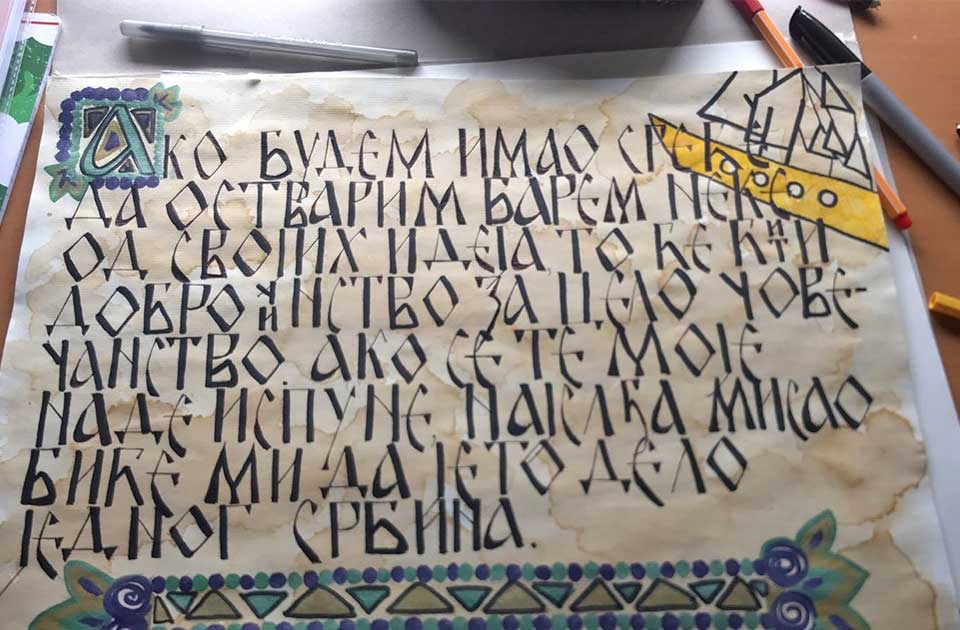 АКО БУДЕМ ИМАО СРЕЋЕ
ДА ОСТВАРИМ БАРЕМ НЕКЕ
ОД СВОЈИХ ИДЕЈА ТО ЋЕ БИТИ
ДОБРОЧИНСТВО ЗА ЦЕЛО ЧОВЕ-
ЧАНСТВО. АКО СЕ ТЕ МОЈЕ
НАДЕ ИСПУНЕ, НАЈСЛЂА МИСАО
БИЋЕ МИ ДА ЈЕ ТО ДЕЛО
ЈЕДНОГ СРБИНА.